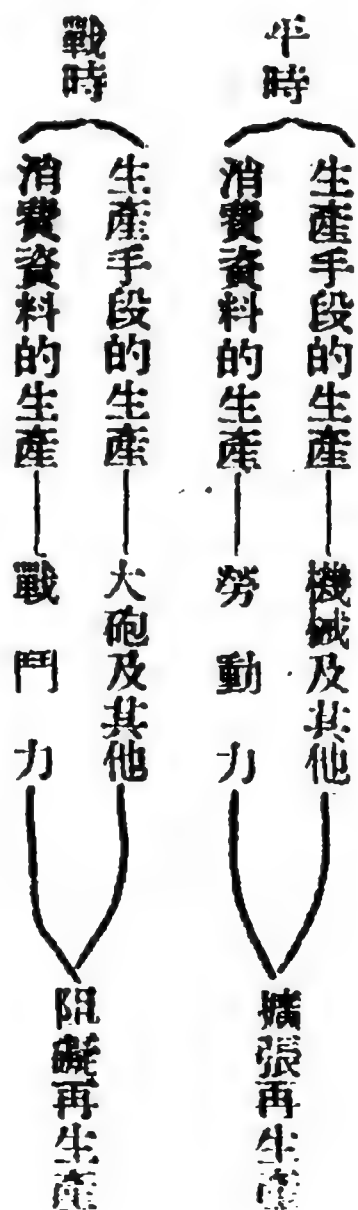 平時
生產手段的生產
機械及其他
消費資料的生產
勞動力
擴張再生產
戰時
生產手段的生產
大砲及其他
消費資料的生產
戰鬥力
阻礙再生產